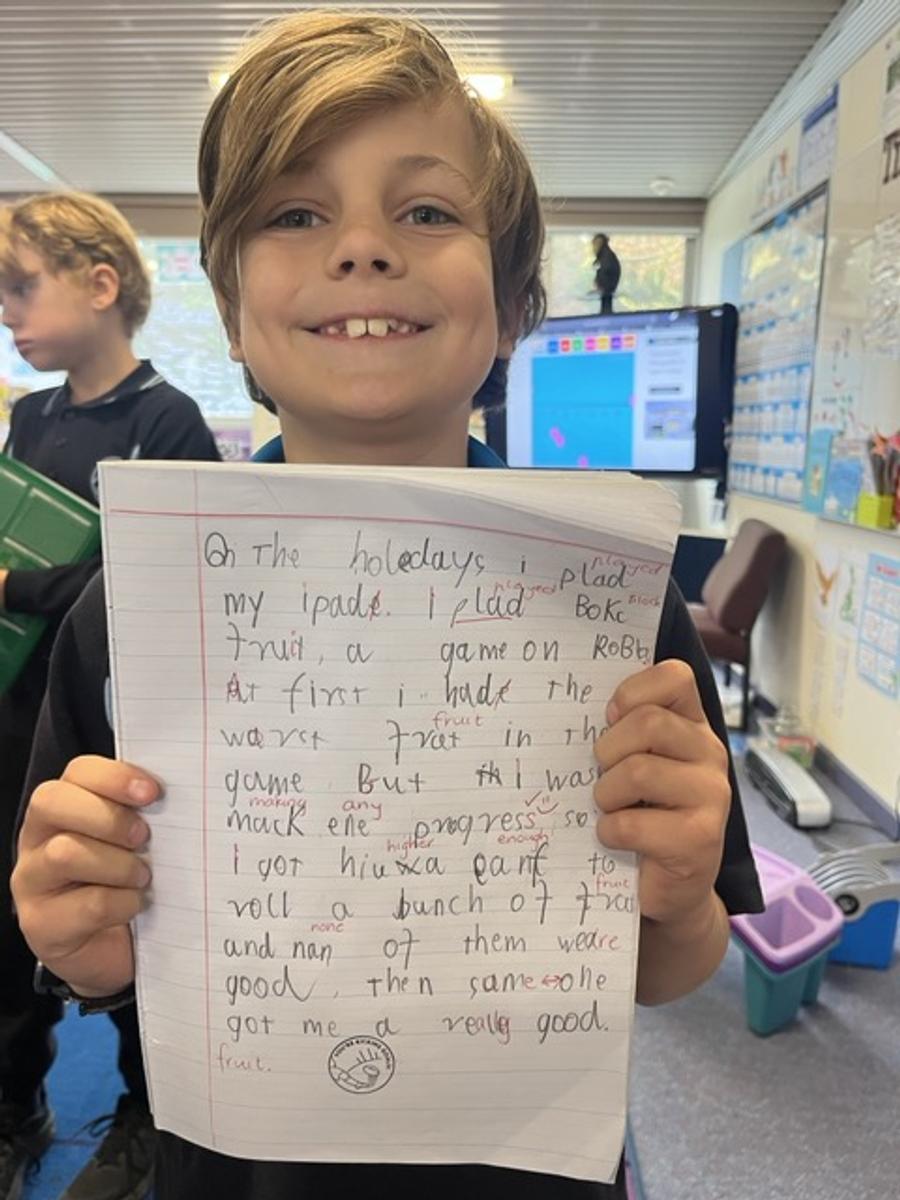 On The holedays i plad played
my ipade. I plad played BoKc Block
fruit, a game on RoBb
At first i hade the
warst frat fruit in the
game But I was
mack making ene any progress so
I got hiuxa higher enough to
roll a bunch of frat fruit
and nan none of them weare
good, then same one
got me a really good.
fruit.